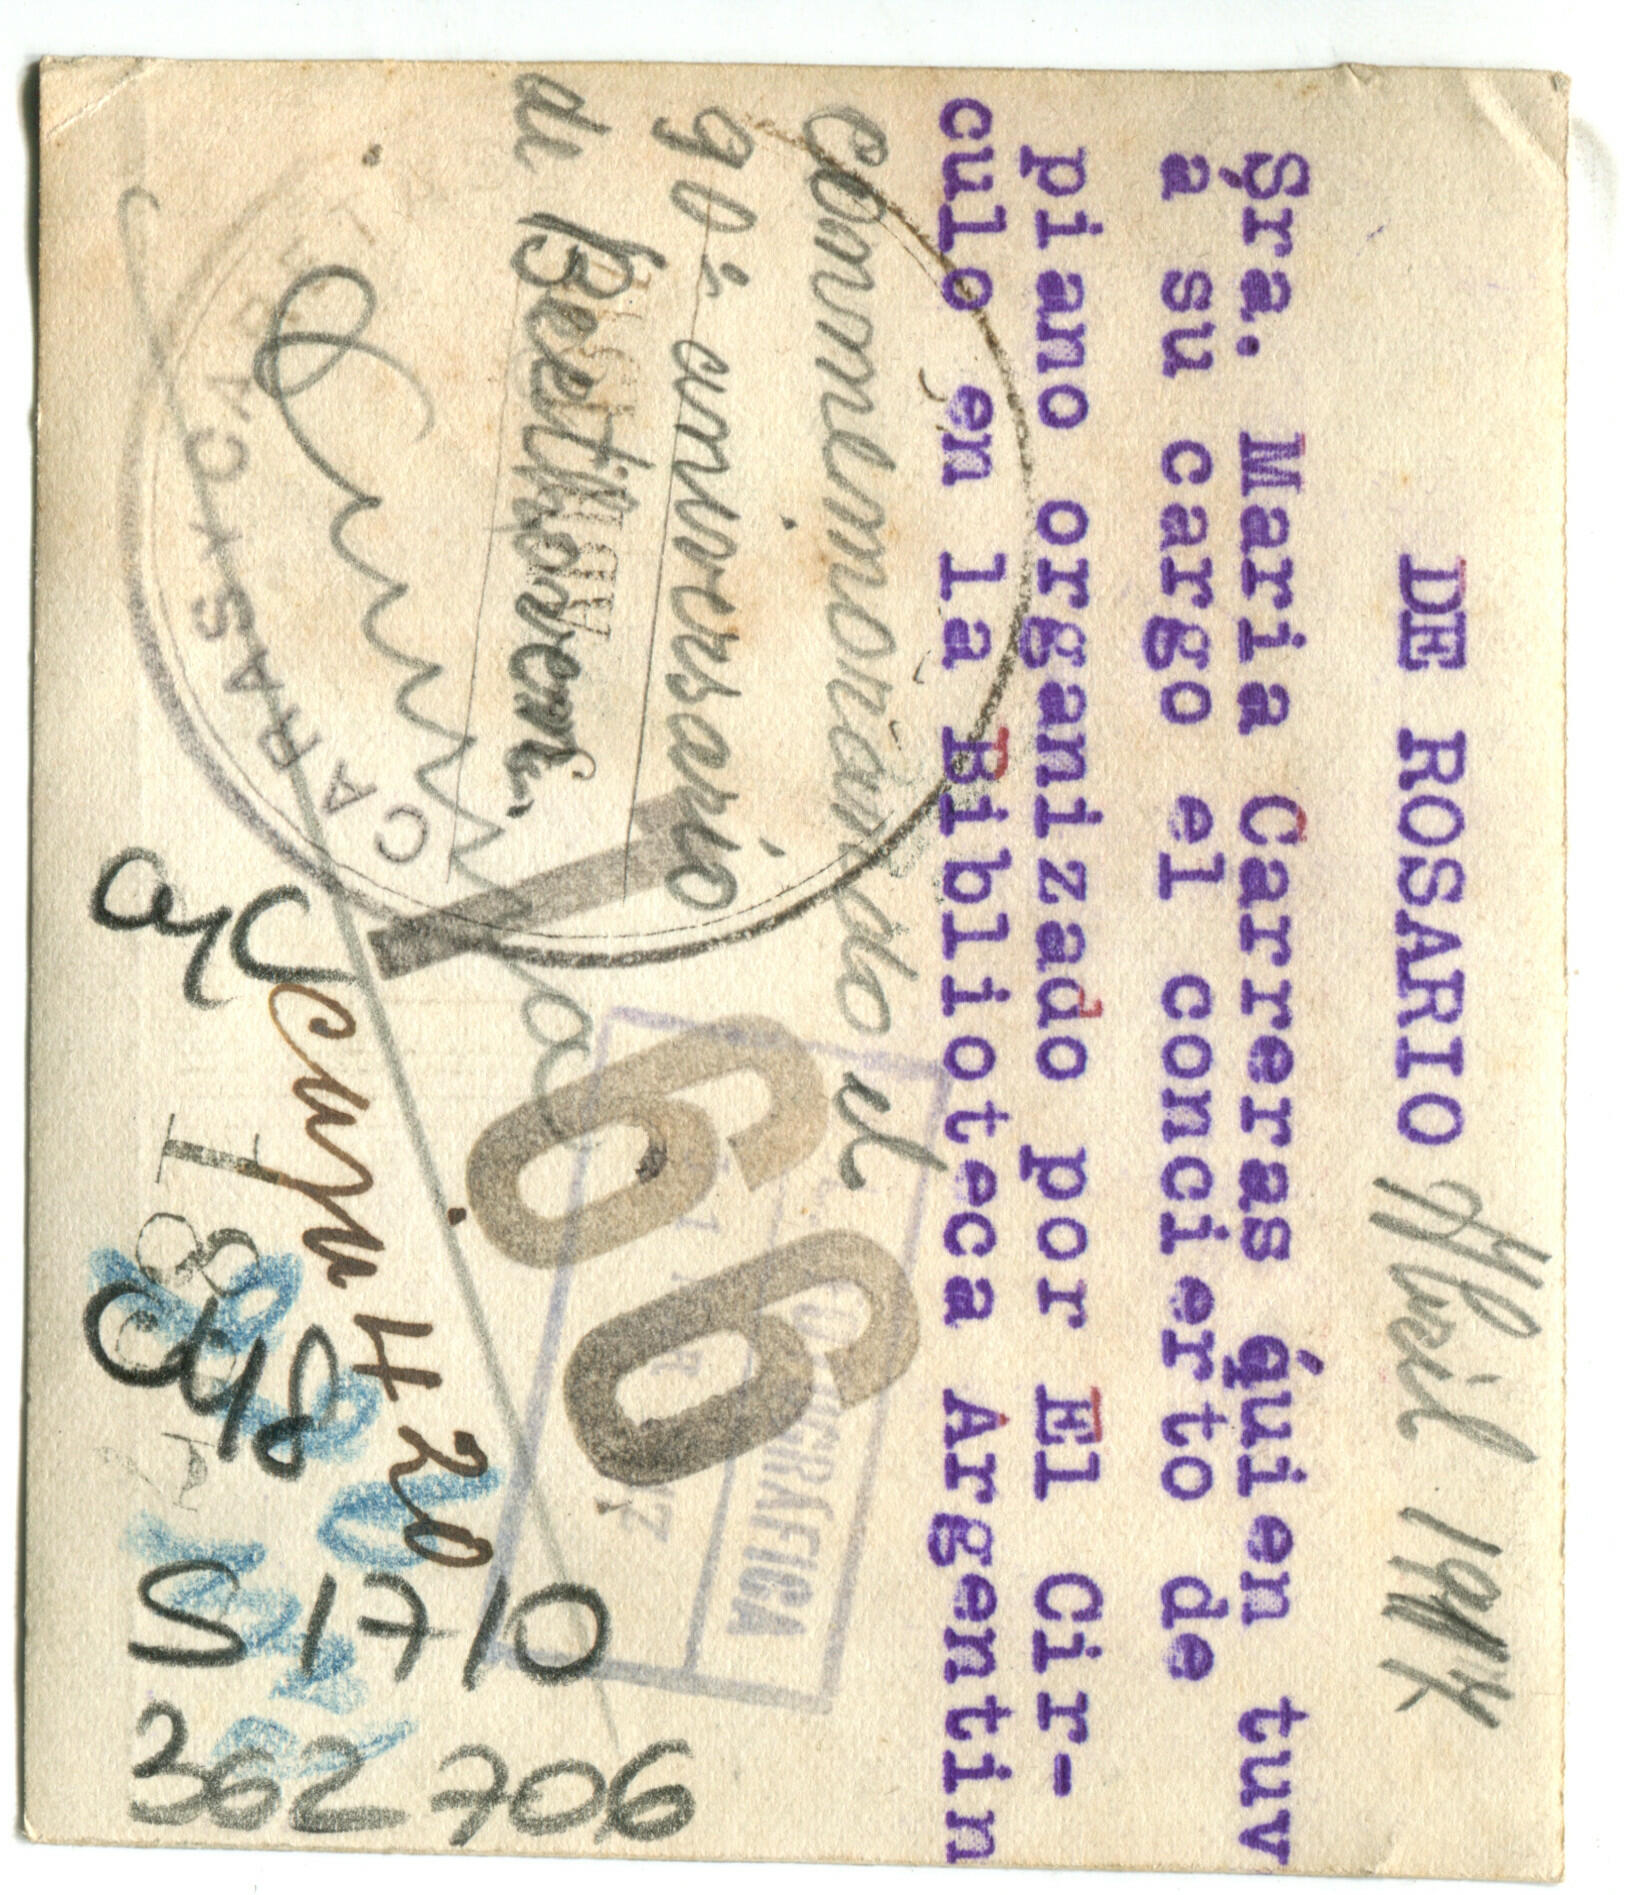 DE ROSARIO Abril 1944
Sra. Maria Carreras quien tuv
a su cargo el concierto de
piano organizado por El Cir-
culo en la Biblioteca Argentin
conmemorando el
90º aniversario
de Beethoven.
CARAS Y CARETA
66
FOTOGRÁFICA
caja H 20
S 1710
362 706